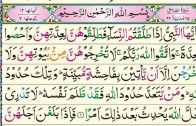 بِسْمِ اللهِ الرَّحْمٰنِ الرَّحِيْمِ
يٰۤاَيُّهَا النَّبِيُّ اِذَا طَلَّقْتُمُ النِّسَآءَ فَطَلِّقُوْهُنَّ لِعِدَّتِهِنَّ وَ
رَبَّكُمْ لَا تُخْرِجُوْهُنَّ مِنْۢ بُيُوْتِهِنَّ وَ
يَّاْتِيْنَ بِفَاحِشَةٍ مُّبَيِّنَةٍ وَتِلْكَ حُدُوْدُ
حُدُوْدَ اللهِ فَقَدْ ظَلَمَ نَفْسَهٗ لَا تَدْرِيْ
اللهَ يُحْدِثُ بَعْدَ ذٰلِكَ اَمْرًا فَاِذَا بَلَغْنَ اَجَلَهُنَّ